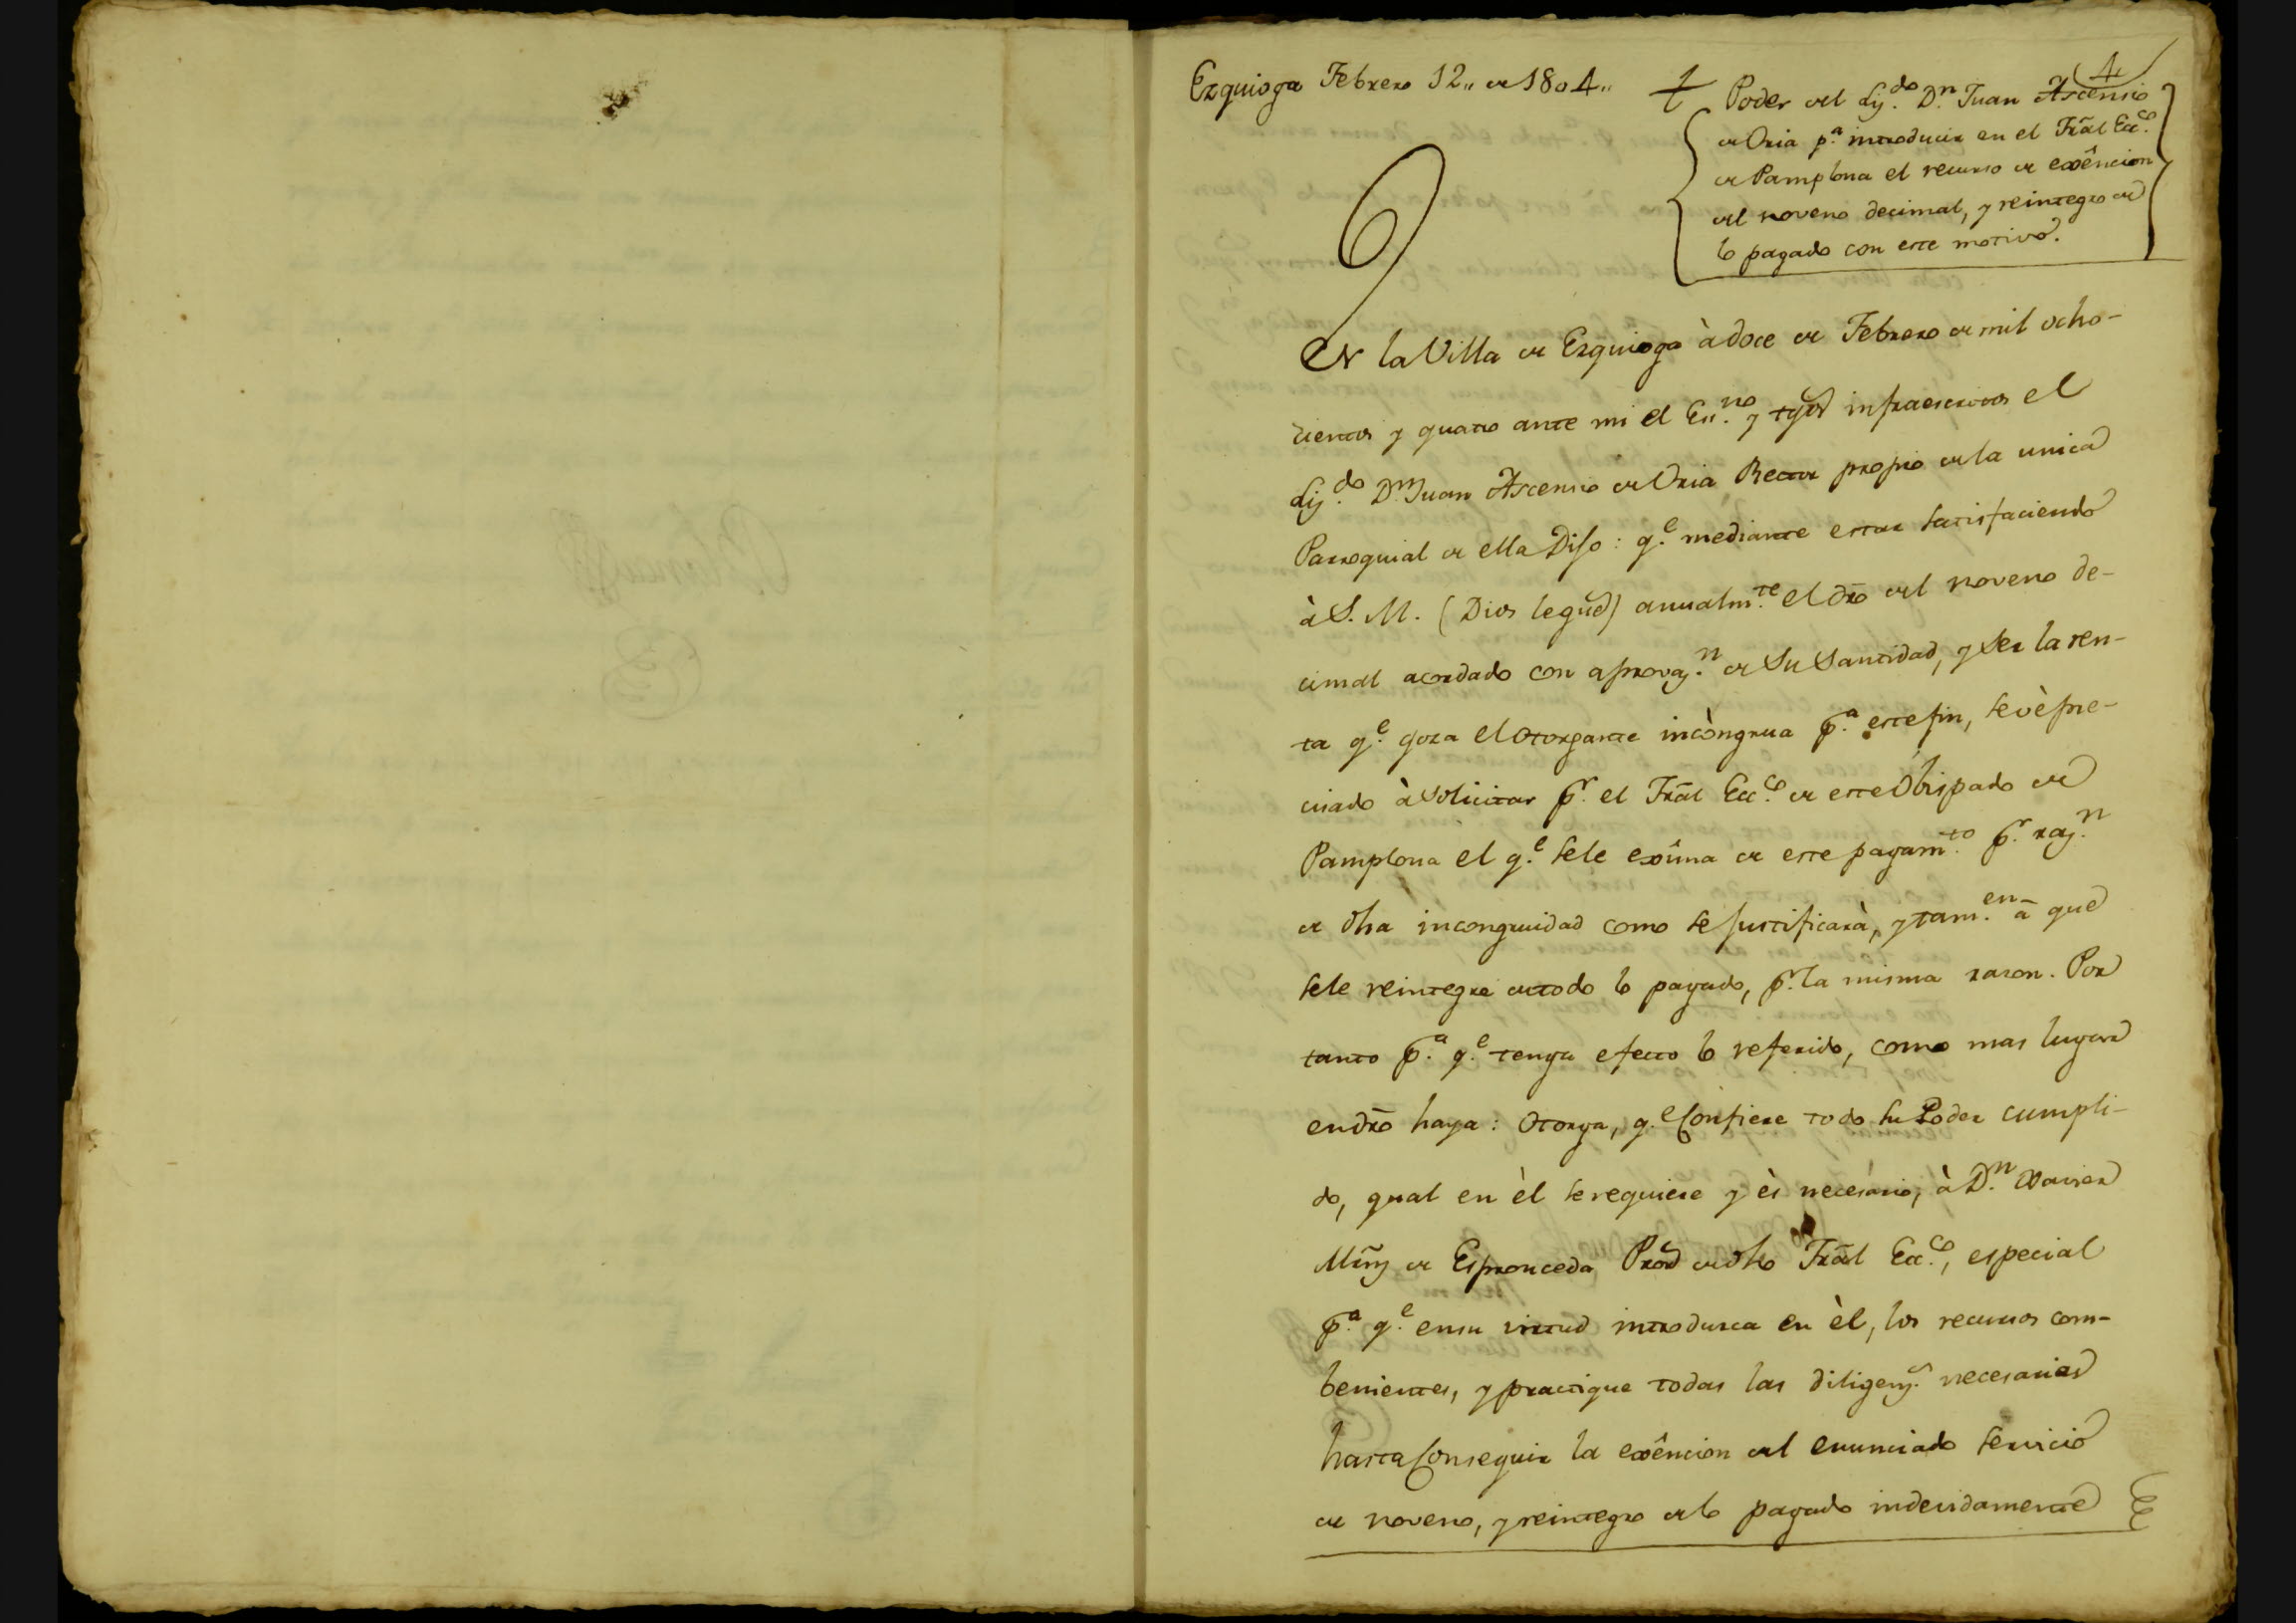 Ezquioga Febrero 12,, de 1804,,
4
Poder del Liz.do D.n Juan Ascensio
de Oria p.a introducir en el Trāl Ecc.co
de Pamplona el recurso de exêncion
del noveno decimal, y reintegro de
lo pagado con este motivo.
En la Villa de Ezquioga à doce de Febrero de mil ocho-
cientos y quatro ante mi el Ess.no y tgōs infraescritos el
Liz.do D.n Juan Ascensio de Oria Rector propio de la unica
Parroquial de ella Dijo: q.e mediante estar satisfaciendo
à S. M. (Dios le gūe) anualm.te el dr̄o del noveno de-
cimal acordado con aprovaz.n de Su Santidad, y Ser la ren-
ta q.e goza el otorgante incòngrua p.a este fin, se vè pre-
cisado à solicitar p.r el Trāl Ecc.co de este Obispado de
Pamplona el q.e se le exîma de este pagam.to p.r raz.n
de dha incongruidad como se justificarà, y tam.en ā que
se le reintegre de todo lo pagado, p.r la misma razon. Por
tanto p.a q.e tenga efecto lo referido, como mas lugar
en dr̄o haya: Otorga, q.e Confiere todo su Poder cumpli-
do, qual en èl se requiere y ès necesario, à D.n Xavier
Mr̄nz de Espronceda Prōr de dho Trāl Ecc.co, especial
p.a q.e en su virtud introdusca en èl, los recursos com-
benientes, y practique todas las diligenz.s necesarias
hasta Conseguir la exêncion del enunciado servicio
de noveno, y reintegro de lo pagado indevidamente